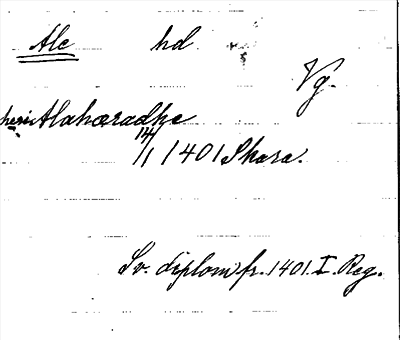 Ale hd
Vg.
Alahæradhe
14/1 1401 Skara.
Sv. diplom fr. 1401. I. Reg.